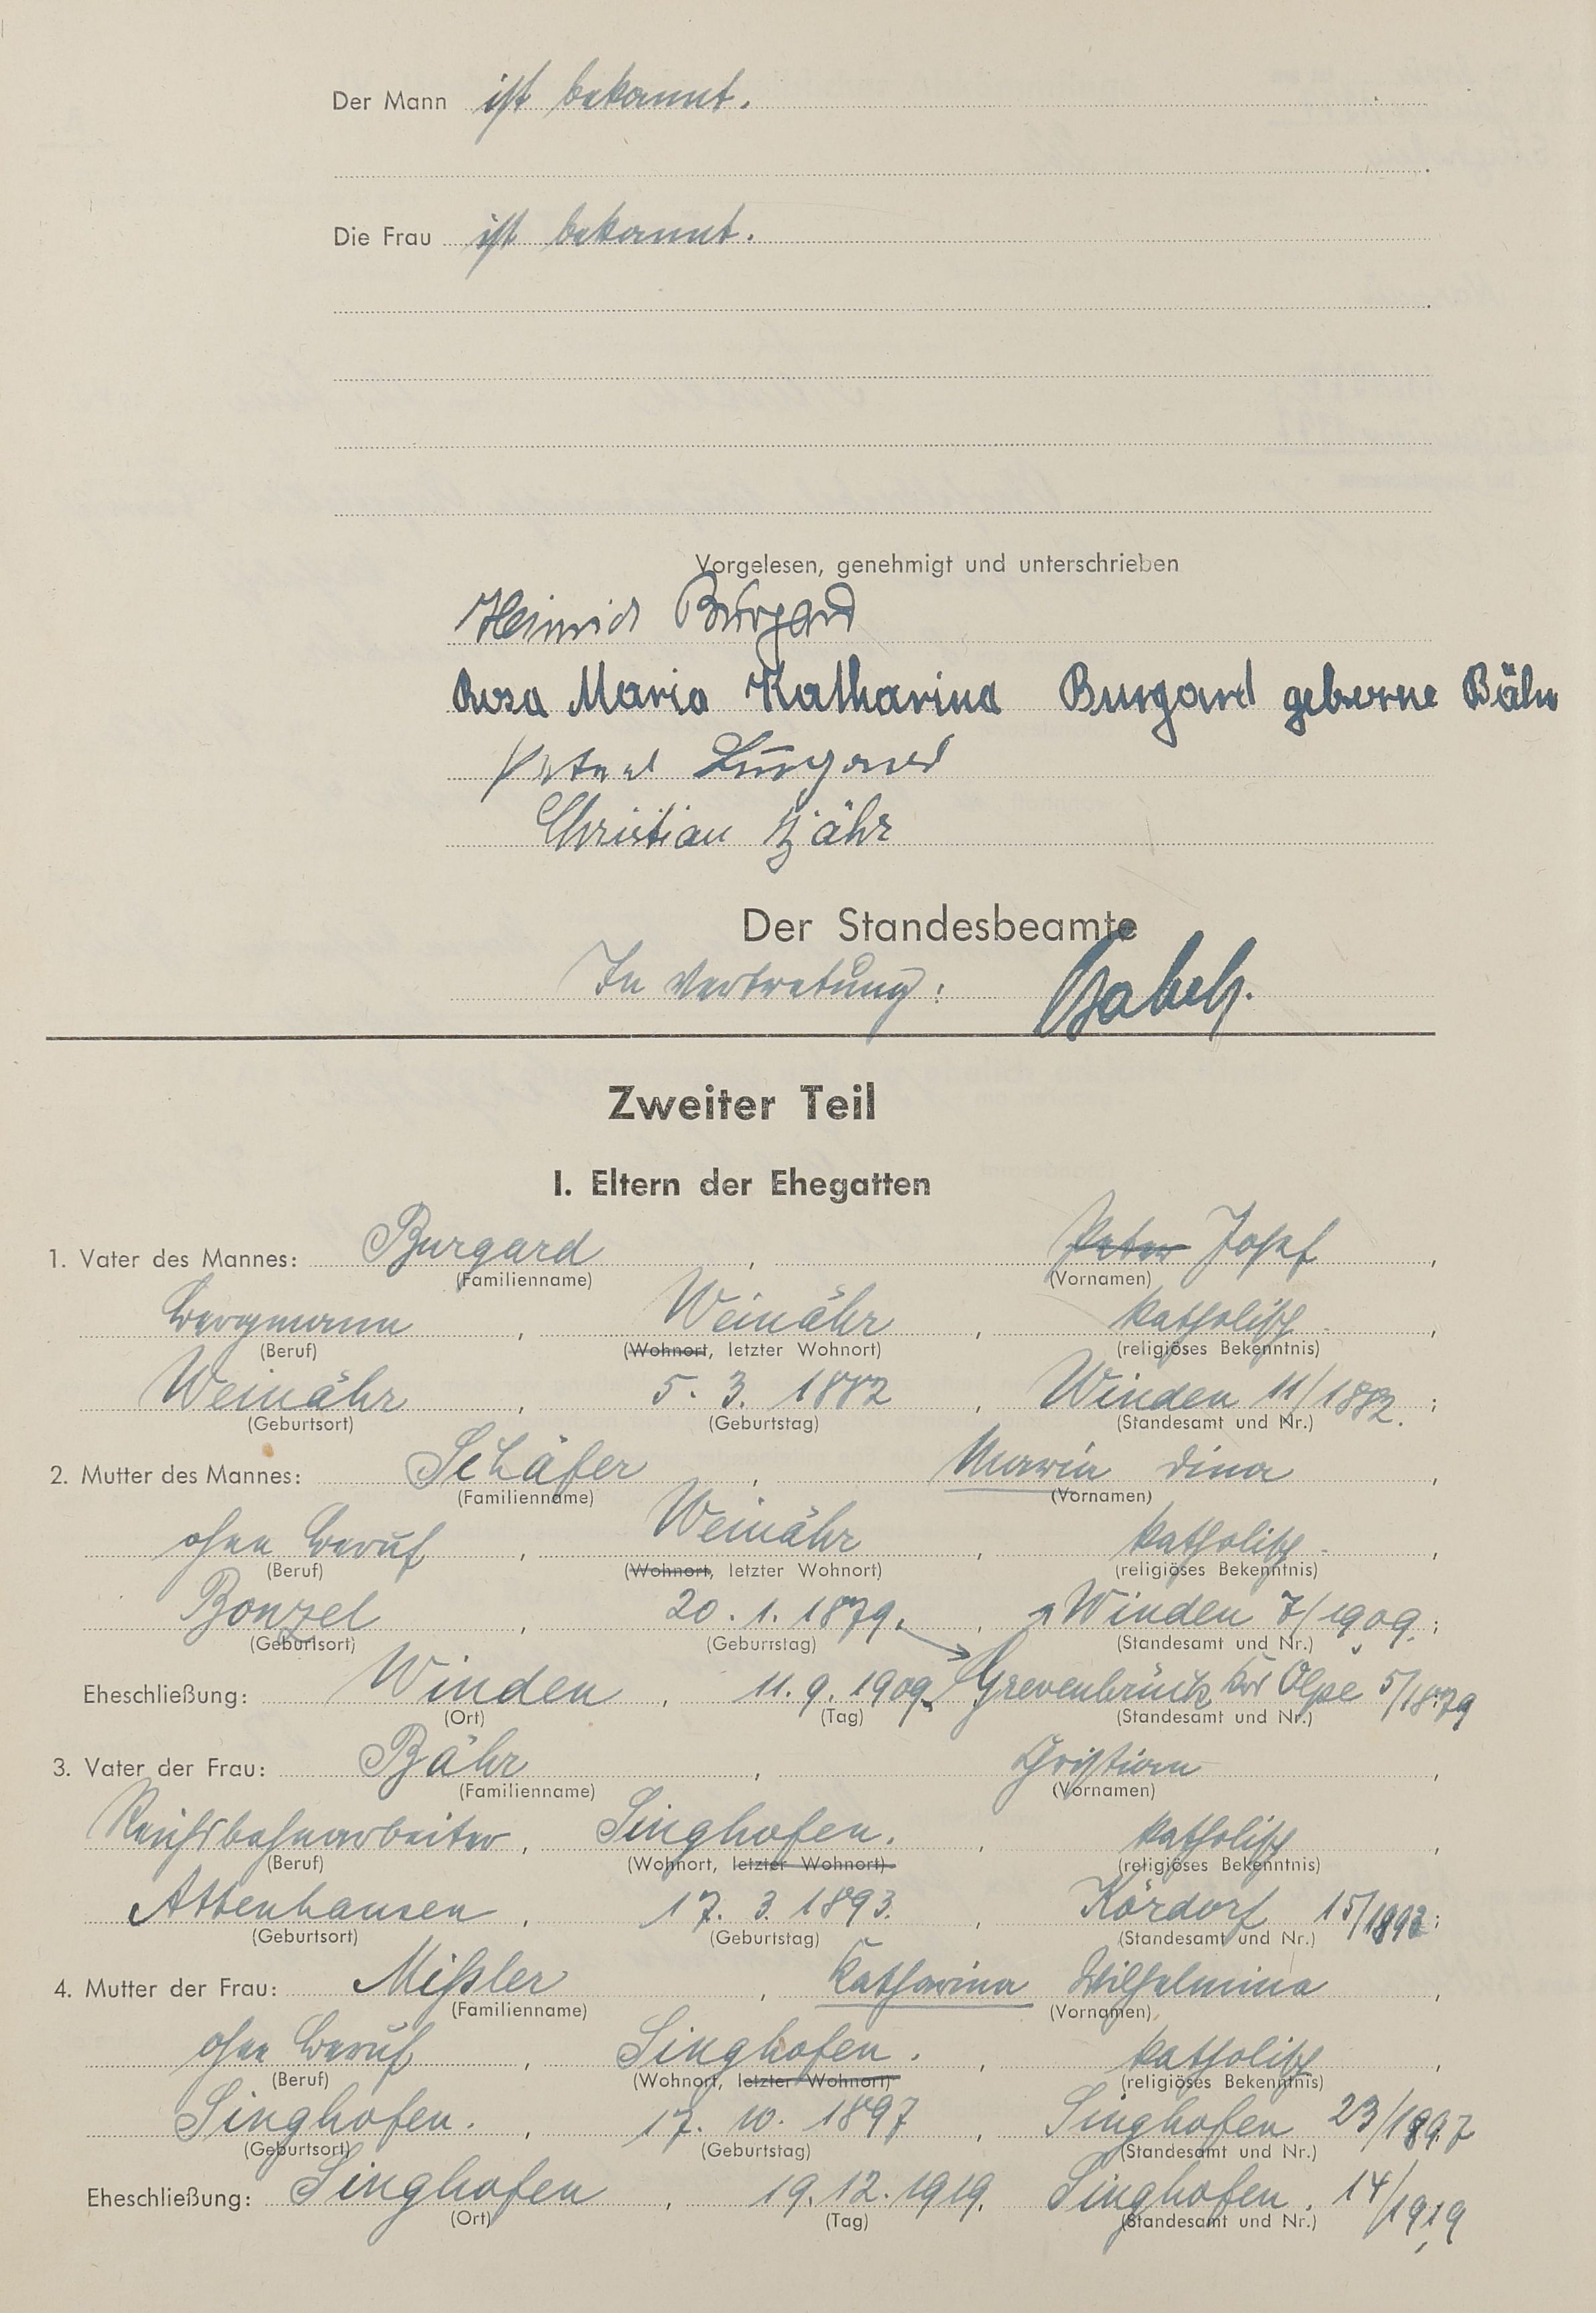 Der Mann ist bekannt.
Die Frau ist bekannt.
Vorgelesen, genehmigt und unterschrieben
Heinrich Burgard
Rosa Maria Katharina Burgard geborne Bähr
Peter Burgard
Christian Bähr
Der Standesbeamte
In Vertretung:
Zweiter Teil
I. Eltern der Ehegatten
1. Vater des Mannes: Burgard, Peter Josef,
(Familienname) (Vornamen)
Bergmann, Weinähr, katholisch,
(Beruf) (Wohnort, letzter Wohnort) (religiöses Bekenntnis)
Weinähr, 5. 3. 1882, Winden 11/1882.;
(Geburtsort) (Geburtstag) (Standesamt und Nr.)
2. Mutter des Mannes: Schäfer, Maria Dina,
(Familienname) (Vornamen)
ohne Beruf, Weinähr, katholisch,
(Beruf) (Wohnort, letzter Wohnort) (religiöses Bekenntnis)
Bonzel, 20. 1. 1879., Winden 7/1909.;
(Geburtsort) (Geburtstag) (Standesamt und Nr.)
Eheschließung: Winden, 11. 9. 1909. Grevenbrück Krs Olpe 5/1879
(Ort) (Tag) (Standesamt und Nr.)
3. Vater der Frau: Bähr, Christian,
(Familienname) (Vornamen)
Reichsbahnarbeiter, Singhofen., katholisch,
(Beruf) (Wohnort, letzter Wohnort) (religiöses Bekenntnis)
Attenhausen, 17. 3. 1893., Kördorf 15/1893;
(Geburtsort) (Geburtstag) (Standesamt und Nr.)
4. Mutter der Frau: Mißler, Katharina Wilhelmina,
(Familienname) (Vornamen)
ohne Beruf, Singhofen., katholisch,
(Beruf) (Wohnort, letzter Wohnort) (religiöses Bekenntnis)
Singhofen., 17. 10. 1897, Singhofen 23/1897
(Geburtsort) (Geburtstag) (Standesamt und Nr.)
Eheschließung: Singhofen, 19. 12. 1919. Singhofen. 14/1919
(Ort) (Tag) (Standesamt und Nr.)